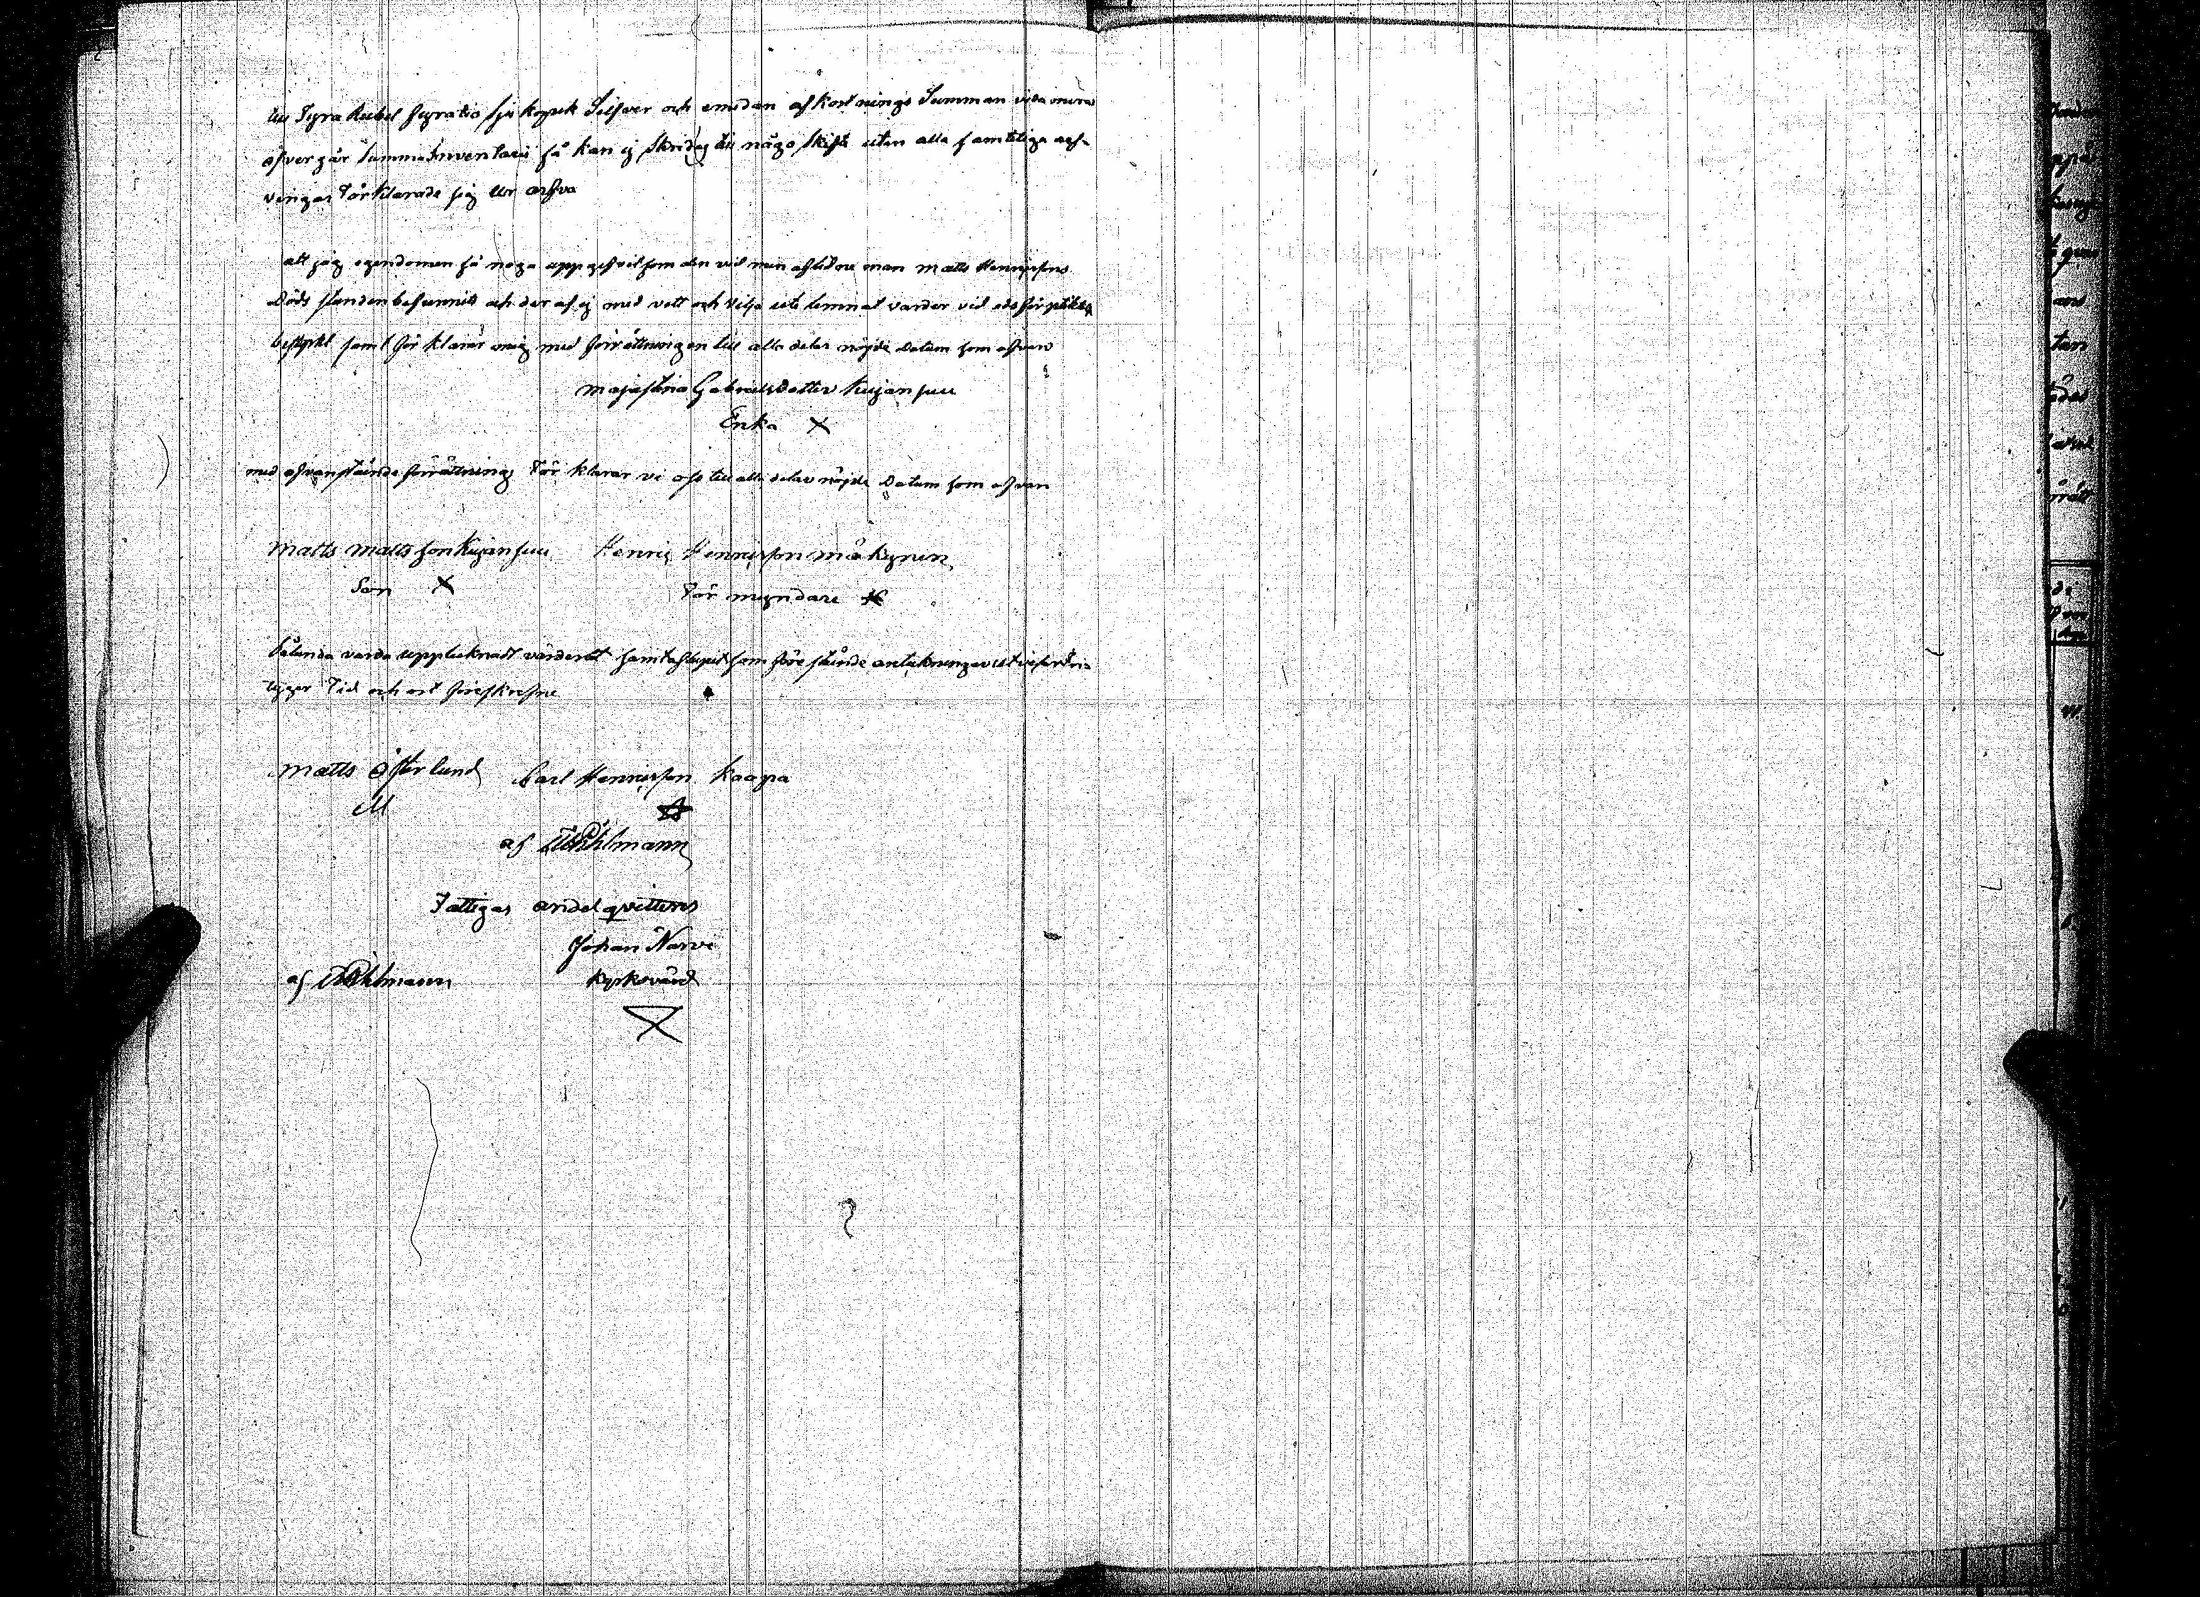 till Fyra Rubel Fyratio sju kopek Silfver och emedan afkortnings Summan vida mera
öfvergår Summa Inventarii så kan ej skridas till någo skifte utan alla samteliga arf-
vingar förklarade sig Urarfva
att jag egendomen så noga uppgifvit som den vid min aflidne man Matts Henricsons
Döds stunden befunnits och der af ej med vett och vilja ute lemnat varder vid eds förpliktelse
bestyrkt samt förklarar mig med förrättningen till alla delar nöjde Datum som ofvan
Maja Stina Gabrielsdotter Kujansuu
Enka X
med ofvanstående förrättning förklarar vi oss till alla delar nöjde Datum som ofvan
Matts Mattsson Kujansuu Henric Henricson Mäkynen
Son X Förmyndare
Sålunda varda upptecknadt värderat samt aflupit som före stående anteckningar utvisar Be-
tygar Tid och ort föreskrefne
Matts Österlund Carl Henricson Kaapa
M
af Pihlmann
Fattigas andel qvitteras
Johan Narvi
af Pihlmann kyrkovärd